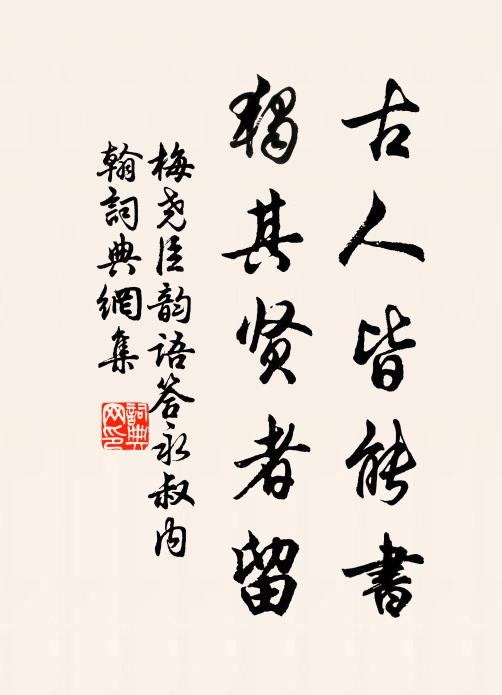 古人皆能書
獨其賢者留
梅尧臣韵語答永叔内
翰詞典網集
詞典网印